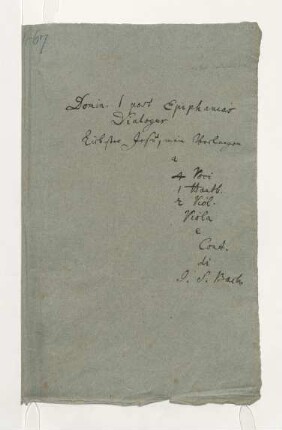 67
Domin. 1 post Epiphanias
Dialogus
Liebster Jesu, mein Verlangen
a
4 Voci
1 Hautb.
2 Viol.
Viola
e
Cont.
di
J. S. Bach